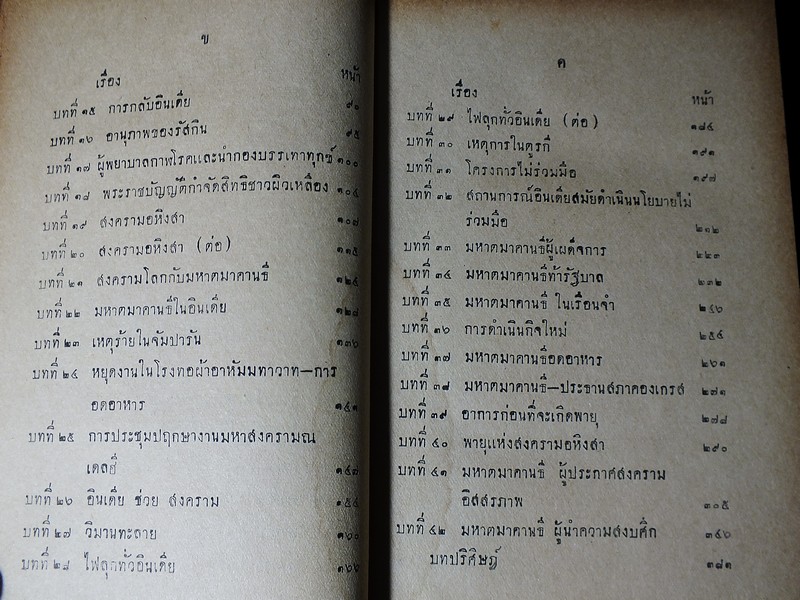 ข
เรื่อง หน้า
บทที่ ๑๕ การกลับอินเดีย ๙๑
บทที่ ๑๖ อานุภาพของรัสกิน ๙๕
บทที่ ๑๗ ผู้พยาบาลกาฬโรคและนำกองบรรเทาทุกข์ ๑๐๐
บทที่ ๑๘ พระราชบัญญัติกำจัดสิทธิชาวผิวเหลือง ๑๐๔
บทที่ ๑๙ สงครามอหิงสา ๑๐๗
บทที่ ๒๐ สงครามอหิงสา (ต่อ) ๑๑๕
บทที่ ๒๑ สงครามโลกกับมหาตมาคานธี ๑๒๔
บทที่ ๒๒ มหาตมาคานธีในอินเดีย ๑๒๘
บทที่ ๒๓ เหตุร้ายในจัมปารัน ๑๓๖
บทที่ ๒๔ หยุดงานในโรงทอผ้าอาหัมมทาวาท—การ
อดอาหาร ๑๔๑
บทที่ ๒๕ การประชุมปฤกษางานมหาสงครามณ
เดลฮี ๑๔๗
บทที่ ๒๖ อินเดีย ช่วย สงคราม ๑๕๔
บทที่ ๒๗ วิมานทะลาย ๑๖๐
บทที่ ๒๘ ไฟลุกทั่วอินเดีย ๑๖๖
ค
เรื่อง หน้า
บทที่ ๒๙ ไฟลุกทั่วอินเดีย (ต่อ) ๑๘๔
บทที่ ๓๐ เหตุการในตุรกี ๑๙๑
บทที่ ๓๑ โครงการไม่ร่วมมือ ๑๙๗
บทที่ ๓๒ สถานการณ์อินเดียสมัยดำเนินนโยบายไม่
ร่วมมือ ๒๑๒
บทที่ ๓๓ มหาตมาคานธีผู้เผด็จการ ๒๒๓
บทที่ ๓๔ มหาตมาคานธีท้ารัฐบาล ๒๓๒
บทที่ ๓๕ มหาตมาคานธี ในเรือนจำ ๒๔๖
บทที่ ๓๖ การดำเนินกิจใหม่ ๒๕๔
บทที่ ๓๗ มหาตมาคานธีอดอาหาร ๒๖๑
บทที่ ๓๘ มหาตมาคานธี—ประธานสภาคองเกรส ๒๗๑
บทที่ ๓๙ อาการก่อนที่จะเกิดพายุ ๒๗๘
บทที่ ๔๐ พายุแห่งสงครามอหิงสา ๒๙๐
บทที่ ๔๑ มหาตมาคานธี ผู้ประกาศสงคราม
อิสสรภาพ ๓๐๕
บทที่ ๔๒ มหาตมาคานธี ผู้นำความสงบศึก ๓๔๖
บทปริศิษฎ์ ๓๘๑